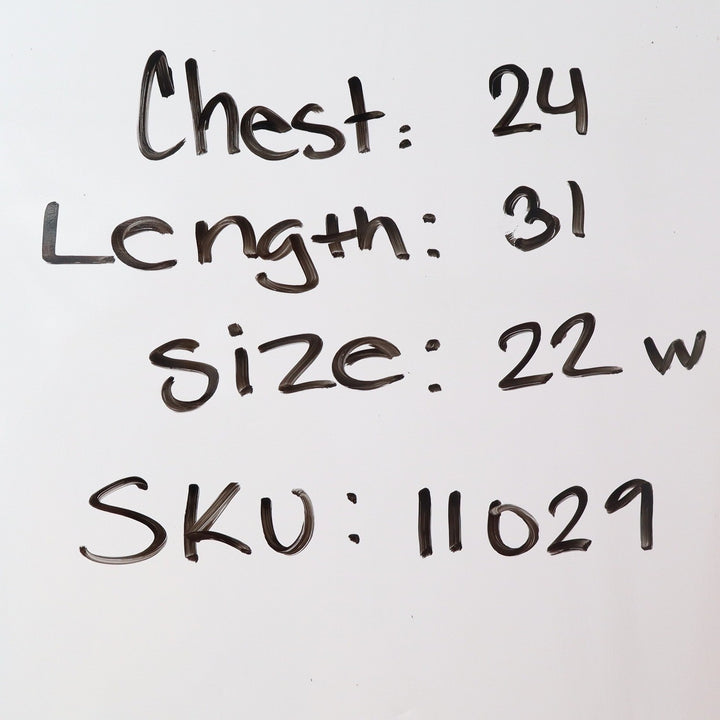 Chest: 24
Length: 31
Size: 22 w
SKU: 11029